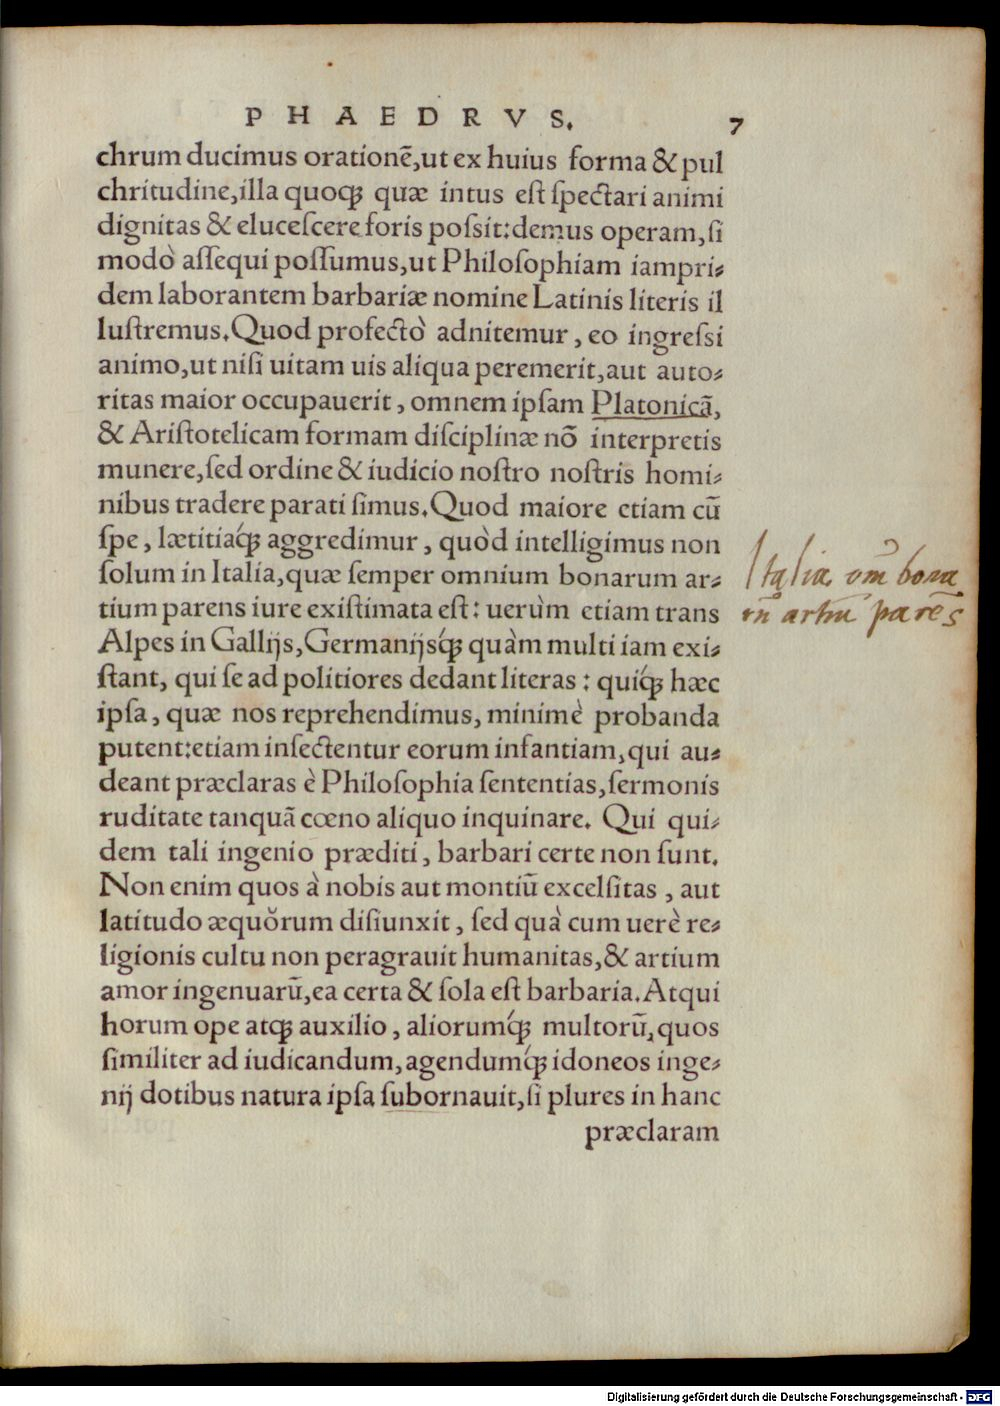 PHAEDRVS. 7
chrum ducimus orationē,ut ex huius forma & pul
chritudine,illa quoqꝫ quæ intus eſt ſpectari animi
dignitas & eluceſcere foris poſsit:demus operam,ſi
modò aſſequi poſſumus,ut Philoſophiam iampri⸗
dem laborantem barbariæ nomine Latinis literis il
luſtremus.Quod profectò adnitemur, eo ingreſsi
animo,ut niſi uitam uis aliqua peremerit,aut auto⸗
ritas maior occupauerit, omnem ipſam Platonicā,
& Ariſtotelicam formam diſciplinæ nō interpretis
munere,ſed ordine & iudicio noſtro noſtris homi⸗
nibus tradere parati ſimus.Quod maiore etiam cū
ſpe, lætitiáqꝫ aggredimur, quòd intelligimus non
ſolum in Italia,quæ ſemper omnium bonarum ar⸗
tium parens iure exiſtimata eſt: uerùm etiam trans
Alpes in Gallijs,Germanijsq́ꝫ quàm multi iam exi⸗
ſtant, qui ſe ad politiores dedant literas: quiq́ꝫ hæc
ipſa, quæ nos reprehendimus, minimè probanda
putent:etiam inſectentur eorum infantiam,qui au⸗
deant præclaras è Philoſophia ſententias,ſermonis
ruditate tanquā cœno aliquo inquinare. Qui qui⸗
dem tali ingenio præditi, barbari certe non ſunt.
Non enim quos à nobis aut montiū excelſitas, aut
latitudo æquŏrum diſiunxit, ſed quà cum uerè re⸗
ligionis cultu non peragrauit humanitas,& artium
amor ingenuarū,ea certa & ſola eſt barbaria.Atqui
horum ope atqꝫ auxilio, aliorumq́ꝫ multorū,quos
ſimiliter ad iudicandum,agendumq́ꝫ idoneos inge⸗
nij dotibus natura ipſa ſubornauit,ſi plures in hanc
præclaram
Italia om̄ bona
artiū parēs
Digitalisierung gefördert durch die Deutsche Forschungsgemeinschaft - DFG